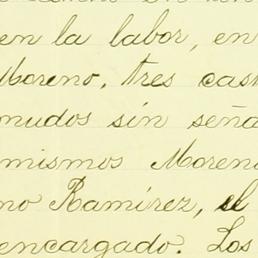 en la labor, en
Moreno, tres cas
mudos sin seña
mismos Moreno
no Ramírez, el
encargado. Los